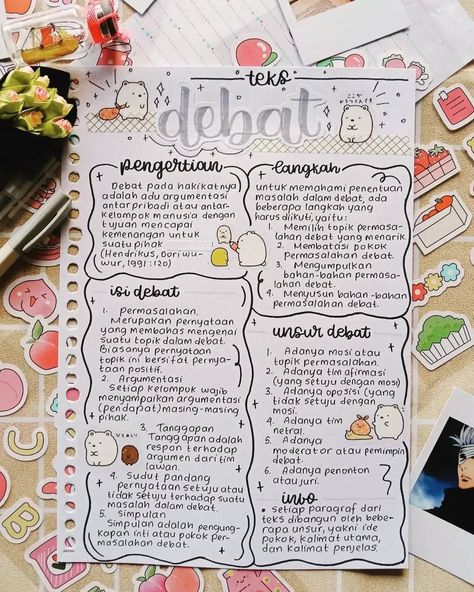 teks
debat
pengertian
Debat pada hakikatnya
adalah adu argumentasi
antar pribadi atau antar-
kelompok manusia dengan
tujuan mencapai
kemenangan untuk
suatu pihak
(Hendrikus, Dori wu-
wur, 1991 : 120)
langkah
untuk memahami penentuan
masalah dalam debat, ada
beberapa langkah yang
harus diikuti, yaitu :
1. Memilih topik permasa-
lahan debat yang menarik.
2. Membatasi pokok
permasalahan debat.
3. Mengumpulkan
bahan-bahan permasa-
lahan debat.
4. Menyusun bahan-bahan
permasalahan debat.
isi debat
1. Permasalahan.
Merupakan pernyataan
yang membahas mengenai
suatu topik dalam debat.
Biasanya pernyataan
topik ini bersifat pernya-
taan positif.
2. Argumentasi
Setiap kelompok wajib
menyampaikan argumentasi
(pendapat) masing-masing
pihak.
3. Tanggapan
Tanggapan adalah
respon terhadap
argumen dari tim
lawan.
4. Sudut pandang
pernyataan setuju atau
tidak setuju terhadap suatu
masalah dalam debat.
5. Simpulan
Simpulan adalah pengung-
kapan inti atau pokok per-
masalahan debat.
unsur debat
1. Adanya mosi atau
topik permasalahan.
2. Adanya tim afirmasi
(yang setuju dengan mosi)
3. Adanya oposisi (yang
tidak setuju dengan
mosi.
4. Adanya tim
netral.
5. Adanya
moderator atau pemimpin
debat.
6. Adanya penonton
atau juri.
info
• setiap paragraf dari
teks dibangun oleh bebe-
rapa unsur, yakni ide
pokok, kalimat utama,
dan kalimat penjelas.